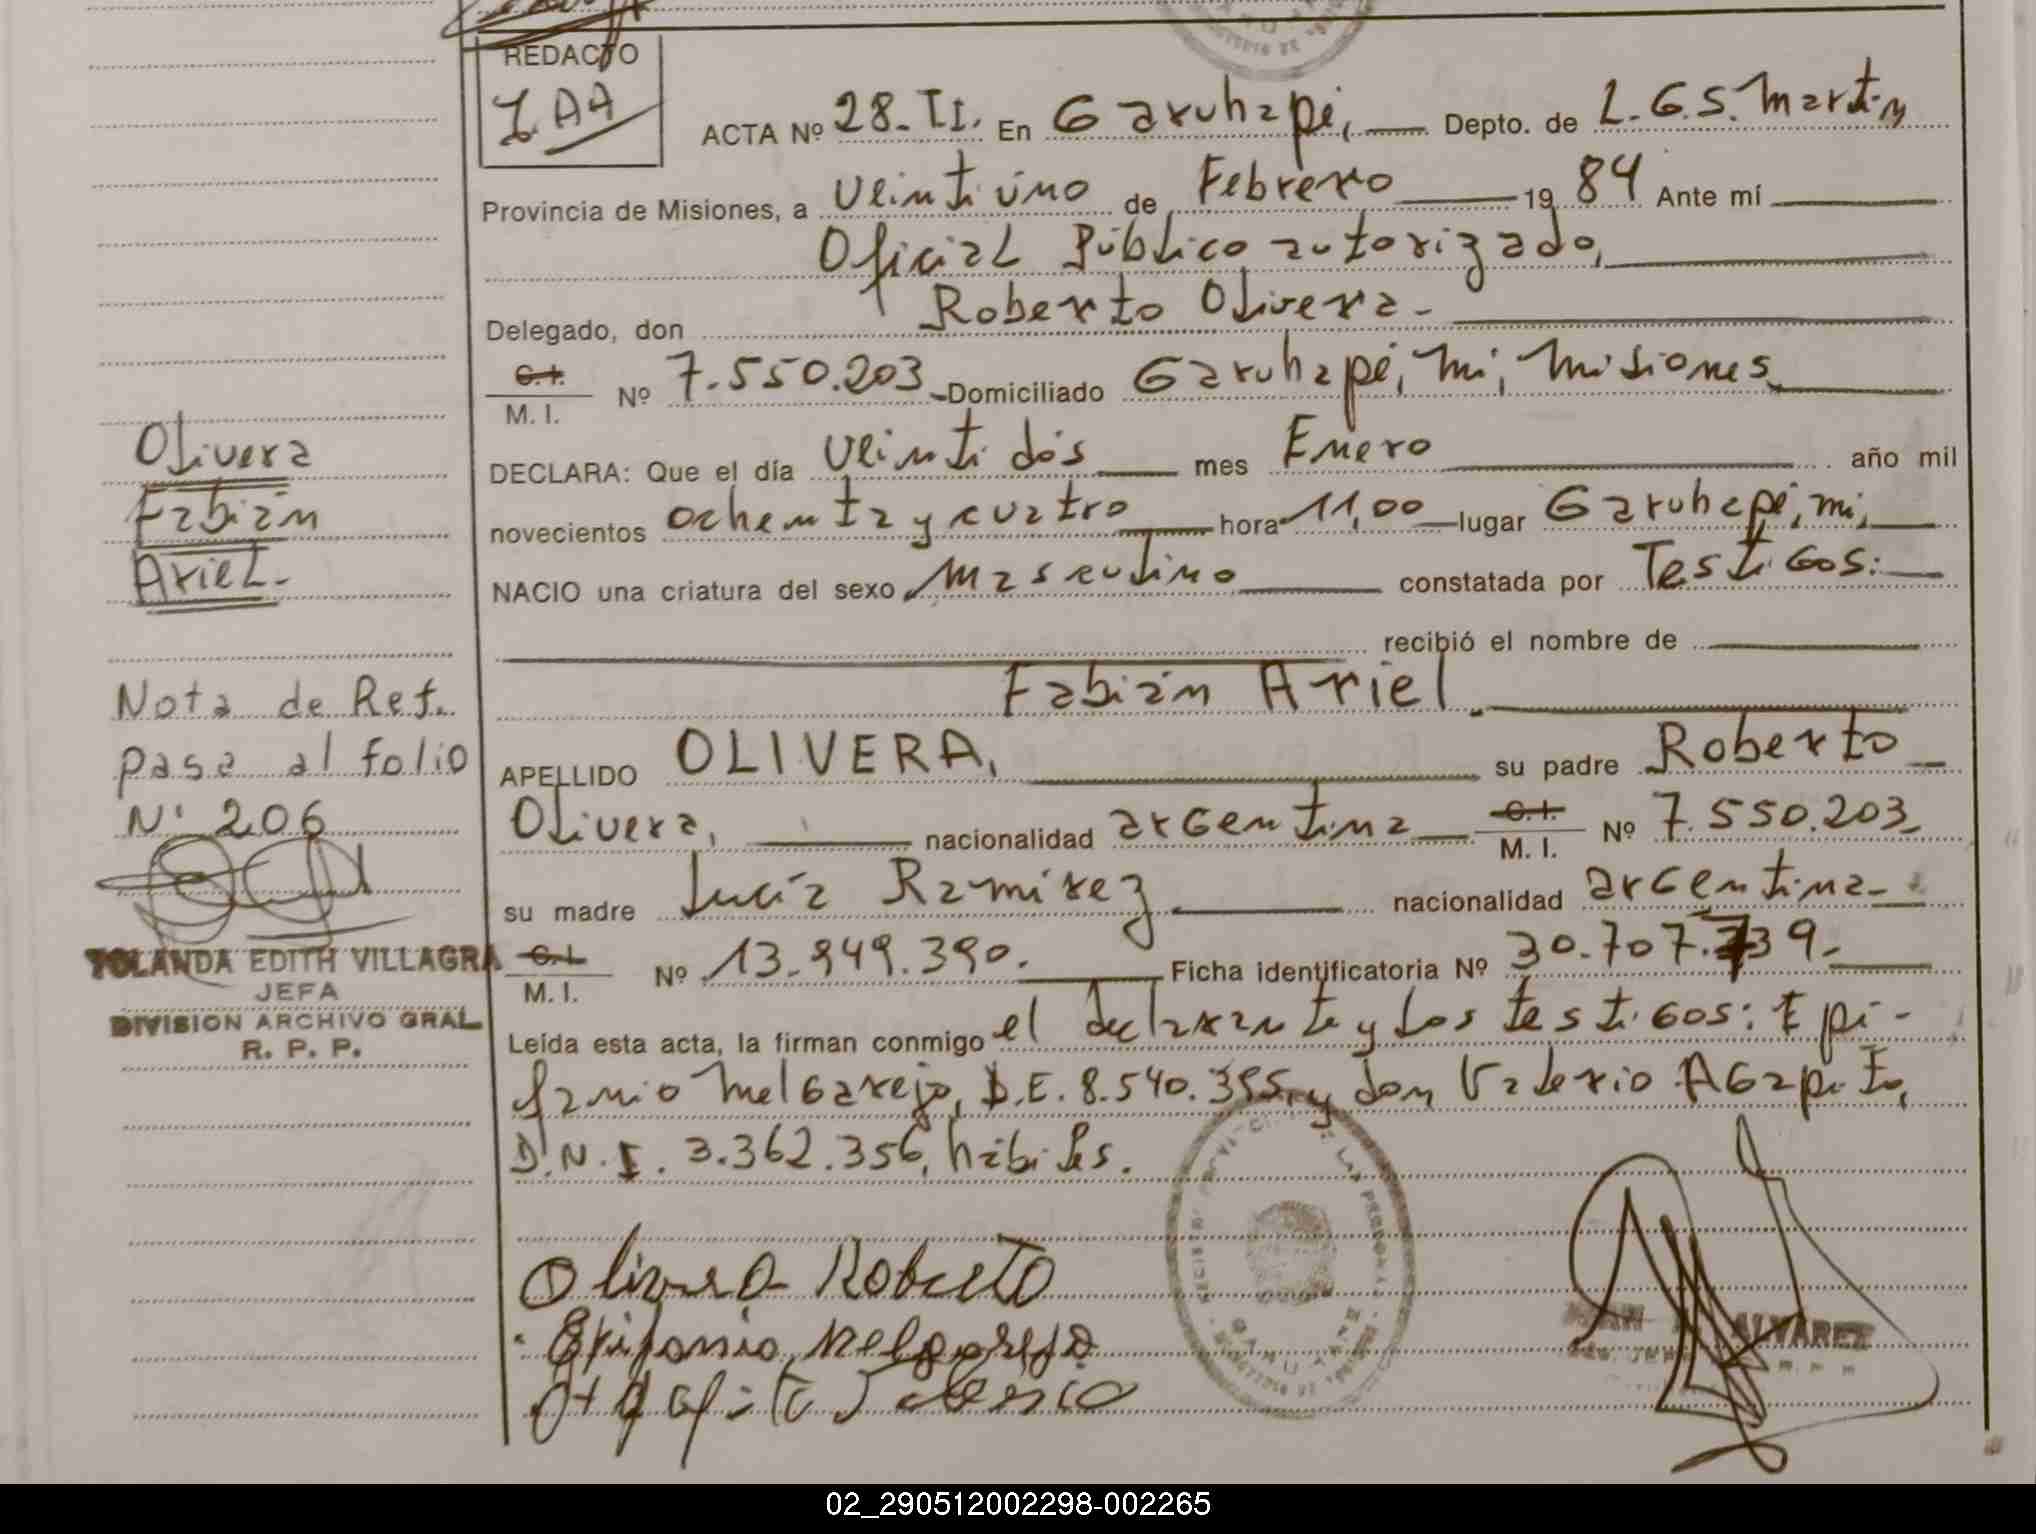 REDACTO
ACTA Nº 28-II. En Garuhapé, Depto. de L.G.S. Martín
Provincia de Misiones, a veintiúno de Febrero 19 84 Ante mí
Oficial Público autorizado,
Delegado, don Roberto Olivera.-
C.I. M. I. Nº 7.550.203 Domiciliado Garuhapé, mi, Misiones,
DECLARA: Que el día veinti dós mes Enero año mil
novecientos ochenta y cuatro hora 11,00 lugar Garuhapé, mi,
NACIO una criatura del sexo Masculino constatada por Testigos:
recibió el nombre de
Fabián Ariel.
APELLIDO OLIVERA, su padre Roberto
Olivera, nacionalidad argentina C.I. M. I. Nº 7.550.203,
su madre Lucía Ramirez nacionalidad argentina-
C.I. M. I. Nº 13.949.390. Ficha identificatoria Nº 30.707.739.-
Leída esta acta, la firman conmigo el declarante y los testigos: Epi-
fanio Melgarejo, D.E. 8.540.355, y don Valerio Agapito,
D.N.I. 3.362.356, hábiles.
Olivera Roberto
Epifanio Melgarejo
Agapito Valerio
ALVAREZ
Olivera
Fabián
Ariel.
Nota de Ref.
pasa al folio
Nº 206
YOLANDA EDITH VILLAGRA
JEFA
DIVISION ARCHIVO GRAL
R. P. P.
02_290512002298-002265